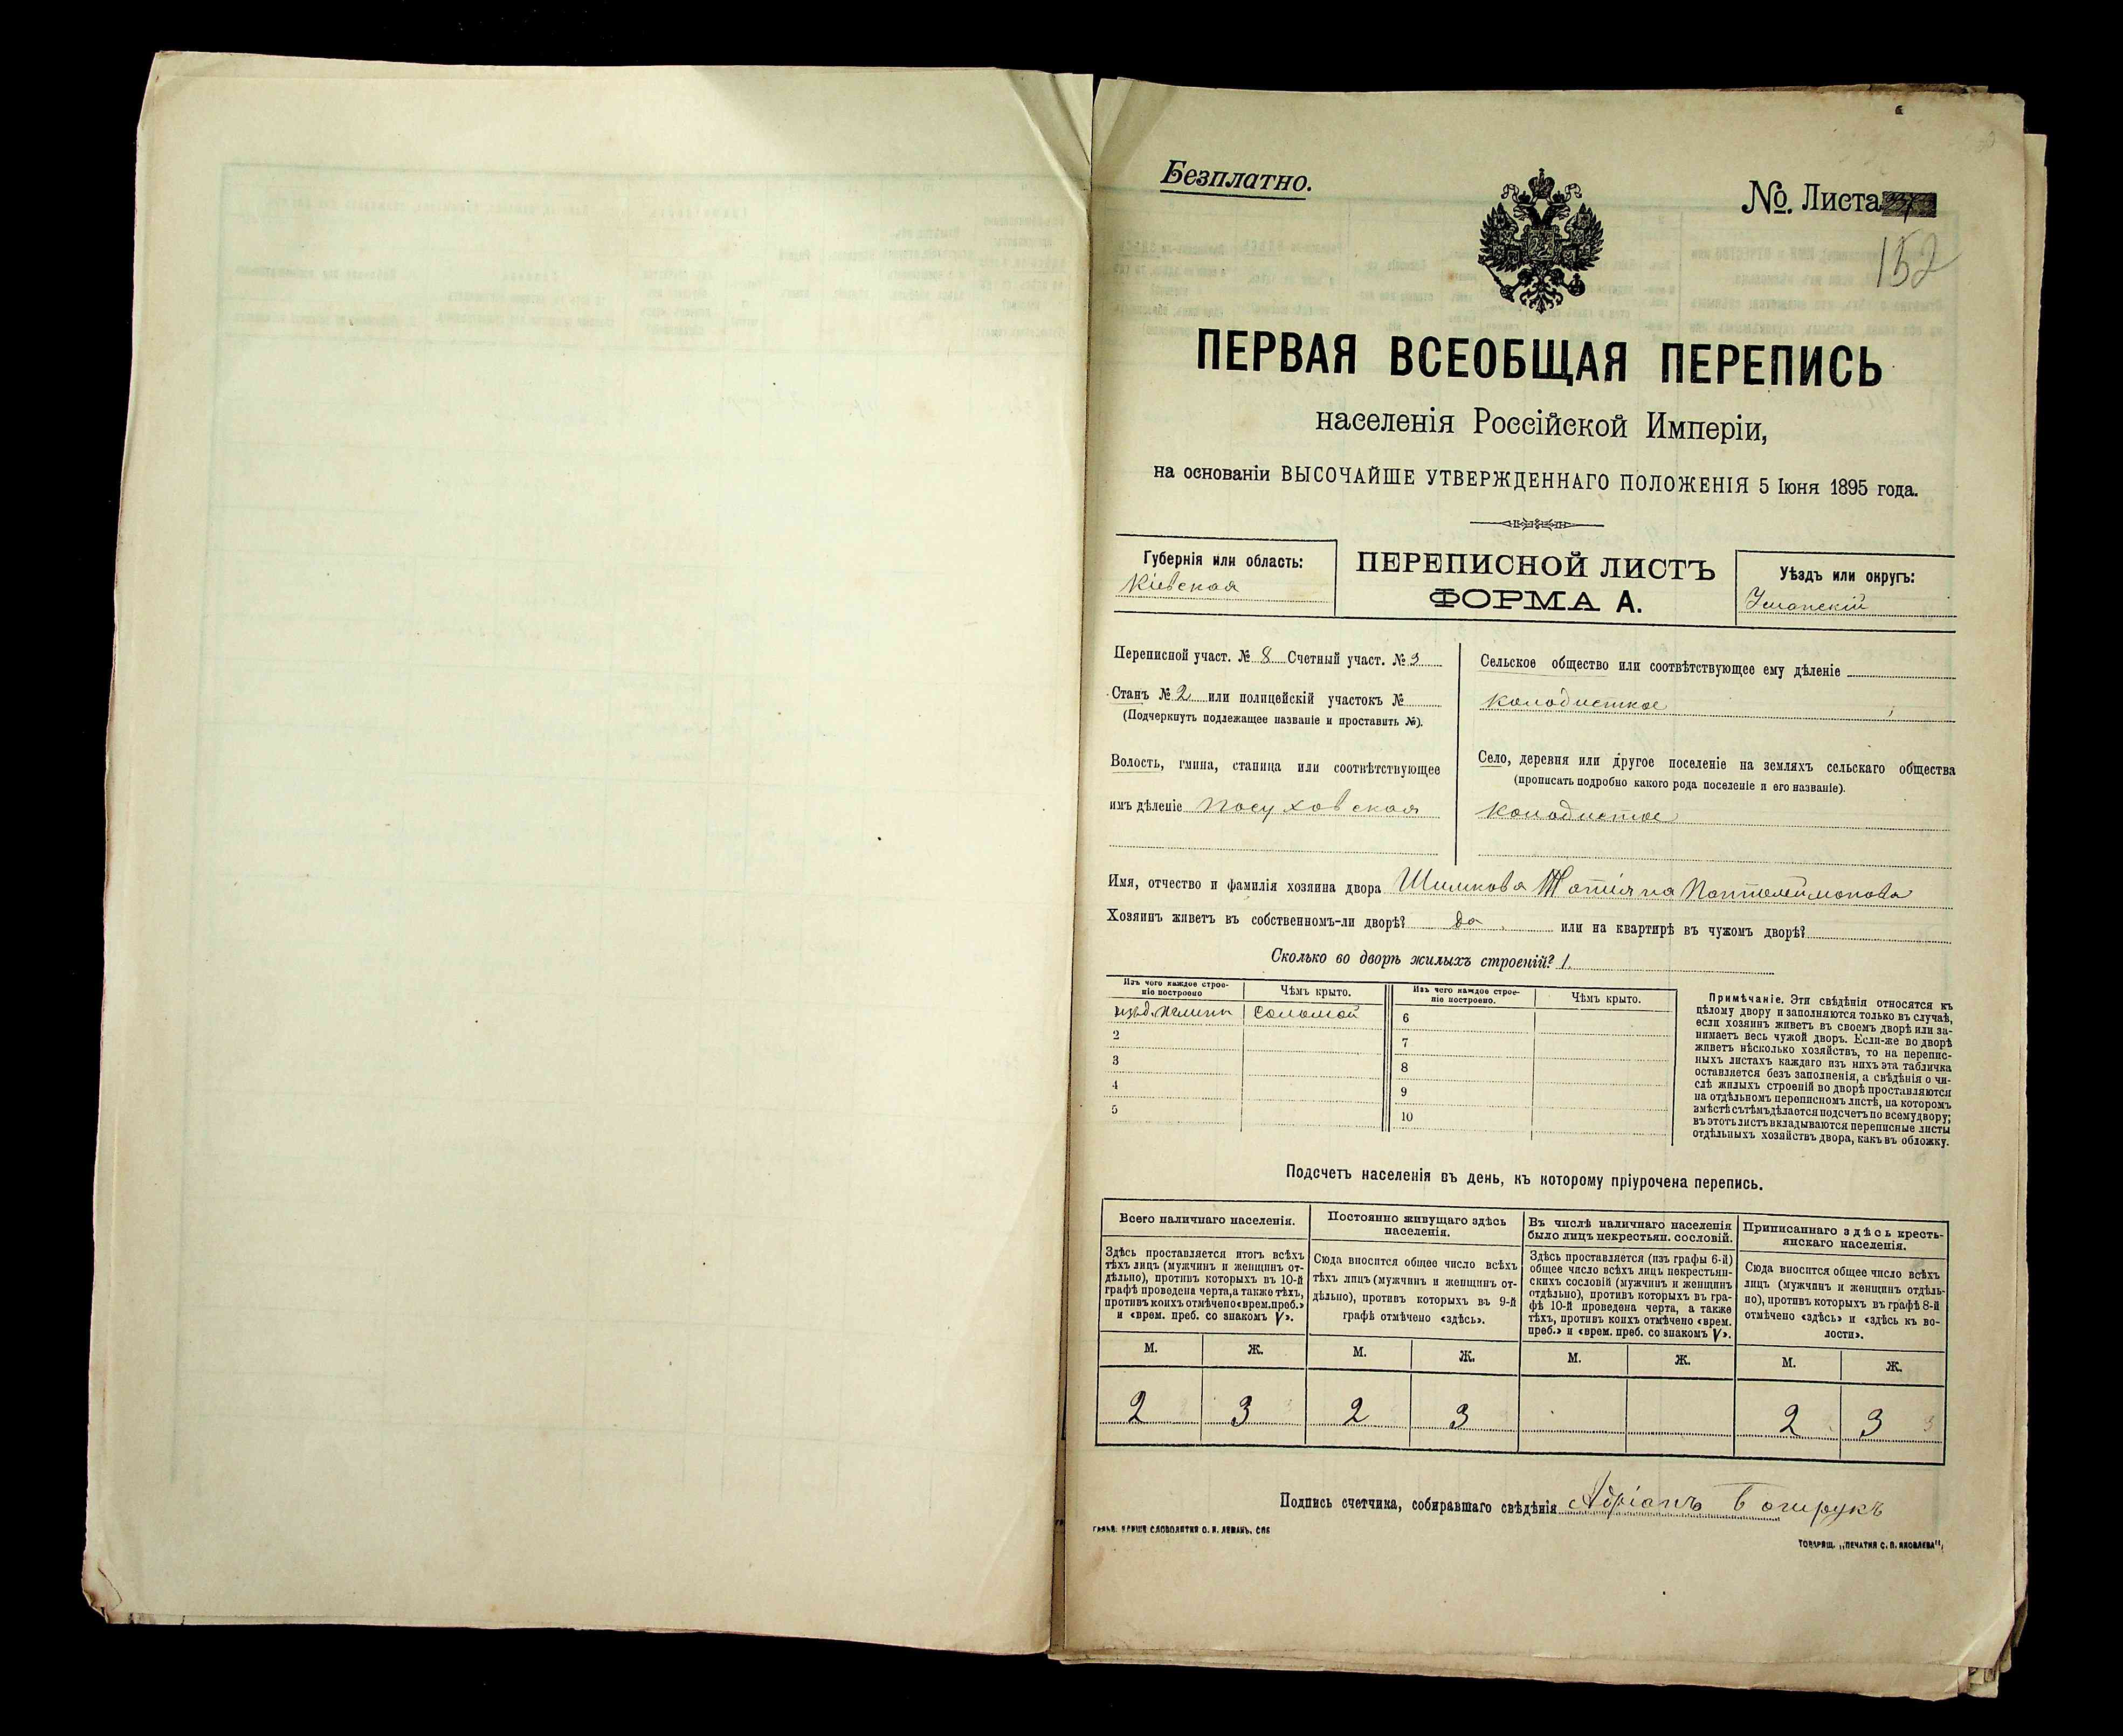 Безплатно.
№. Листа
152
ПЕРВАЯ ВСЕОБЩАЯ ПЕРЕПИСЬ
населенія Россійской Имперіи,
на основаніи ВЫСОЧАЙШЕ УТВЕРЖДЕННАГО ПОЛОЖЕНІЯ 5 Іюня 1895 года.
Губернія или область:
Кіевская
ПЕРЕПИСНОЙ ЛИСТЪ
ФОРМА А.
Уѣздъ или округъ:
Уманскій
Переписной участ. № 8 Счетный участ. № 3
Станъ № 2 или полицейскій участокъ №
(Подчеркнуть подлежащее названіе и проставить №).
Волость, гмина, станица или соотвѣтствующее
имъ дѣленіе Посуховская
Сельское общество или соотвѣтствующее ему дѣленіе
Колодисткое
Село, деревня или другое поселеніе на земляхъ сельскаго общества
(прописать подробно какого рода поселеніе и его названіе).
Колодистое
Имя, отчество и фамилія хозяина двора Шимкова Татіяна Пантелеймонова
Хозяинъ живетъ въ собственномъ-ли дворѣ? да или на квартирѣ въ чужомъ дворѣ?
Сколько во дворѣ жилыхъ строеній? 1.
Изъ чего каждое строе-
ніе построено
Чѣмъ крыто.
Изъ чего каждое строе-
ніе построено.
Чѣмъ крыто.
глины соломой
2
3
4
5
6
7
8
9
10
Примѣчаніе. Эти свѣдѣнія относятся къ
цѣлому двору и заполняются только въ случаѣ,
если хозяинъ живетъ въ своемъ дворѣ или за-
нимаетъ весь чужой дворъ. Если-же во дворѣ
живетъ нѣсколько хозяйствъ, то на перепис-
ныхъ листахъ каждаго изъ нихъ эта табличка
оставляется безъ заполненія, а свѣдѣнія о чи-
слѣ жилыхъ строеній во дворѣ проставляются
на отдѣльномъ переписномъ листѣ, на которомъ
вмѣстѣ съ тѣмъ дѣлается подсчетъ по всему двору;
въ этотъ листъ вкладываются переписные листы
отдѣльныхъ хозяйствъ двора, какъ въ обложку.
Подсчетъ населенія въ день, къ которому пріурочена перепись.
Всего наличнаго населенія.
Здѣсь проставляется итогъ всѣхъ
тѣхъ лицъ (мужчинъ и женщинъ от-
дѣльно), противъ которыхъ въ 10-й
графѣ проведена черта, а также тѣхъ,
противъ коихъ отмѣчено «врем. преб.»
и «врем. преб. со знакомъ V».
Постоянно живущаго здѣсь
населенія.
Сюда вносится общее число всѣхъ
тѣхъ лицъ (мужчинъ и женщинъ от-
дѣльно), противъ которыхъ въ 9-й
графѣ отмѣчено «здѣсь».
Въ числѣ наличнаго населенія
было лицъ некрестьян. сословій.
Здѣсь проставляется (изъ графы 6-й)
общее число всѣхъ лицъ некрестьян-
скихъ сословій (мужчинъ и женщинъ
отдѣльно), противъ которыхъ въ гра-
фѣ 10-й проведена черта, а также
тѣхъ, противъ коихъ отмѣчено «врем.
преб.» и «врем. преб. со знакомъ V».
Приписаннаго здѣсь кресть-
янскаго населенія.
Сюда вносится общее число всѣхъ
лицъ (мужчинъ и женщинъ отдѣль-
но), противъ которыхъ въ графѣ 8-й
отмѣчено «здѣсь» и «здѣсь къ во-
лости».
М. Ж. М. Ж. М. Ж. М. Ж.
2 3 2 3 2 3
Подпись счетчика, собиравшаго свѣдѣнія Адріанъ
СЛОВОЛИТНЯ О. И. ЛЕМАНЪ. СПБ
ТОВАРИЩ. „ПЕЧАТНЯ С. П. ЯКОВЛЕВА".